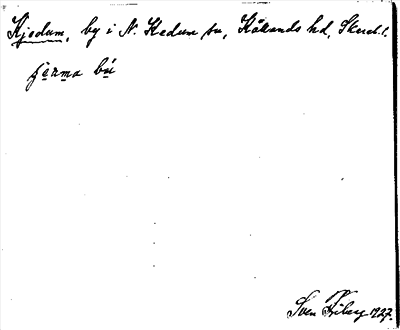 Kjedum, by i N. Kedum sn, Kållands hd, Skarab. l.
jerma bú
Sven Friberg 1927.